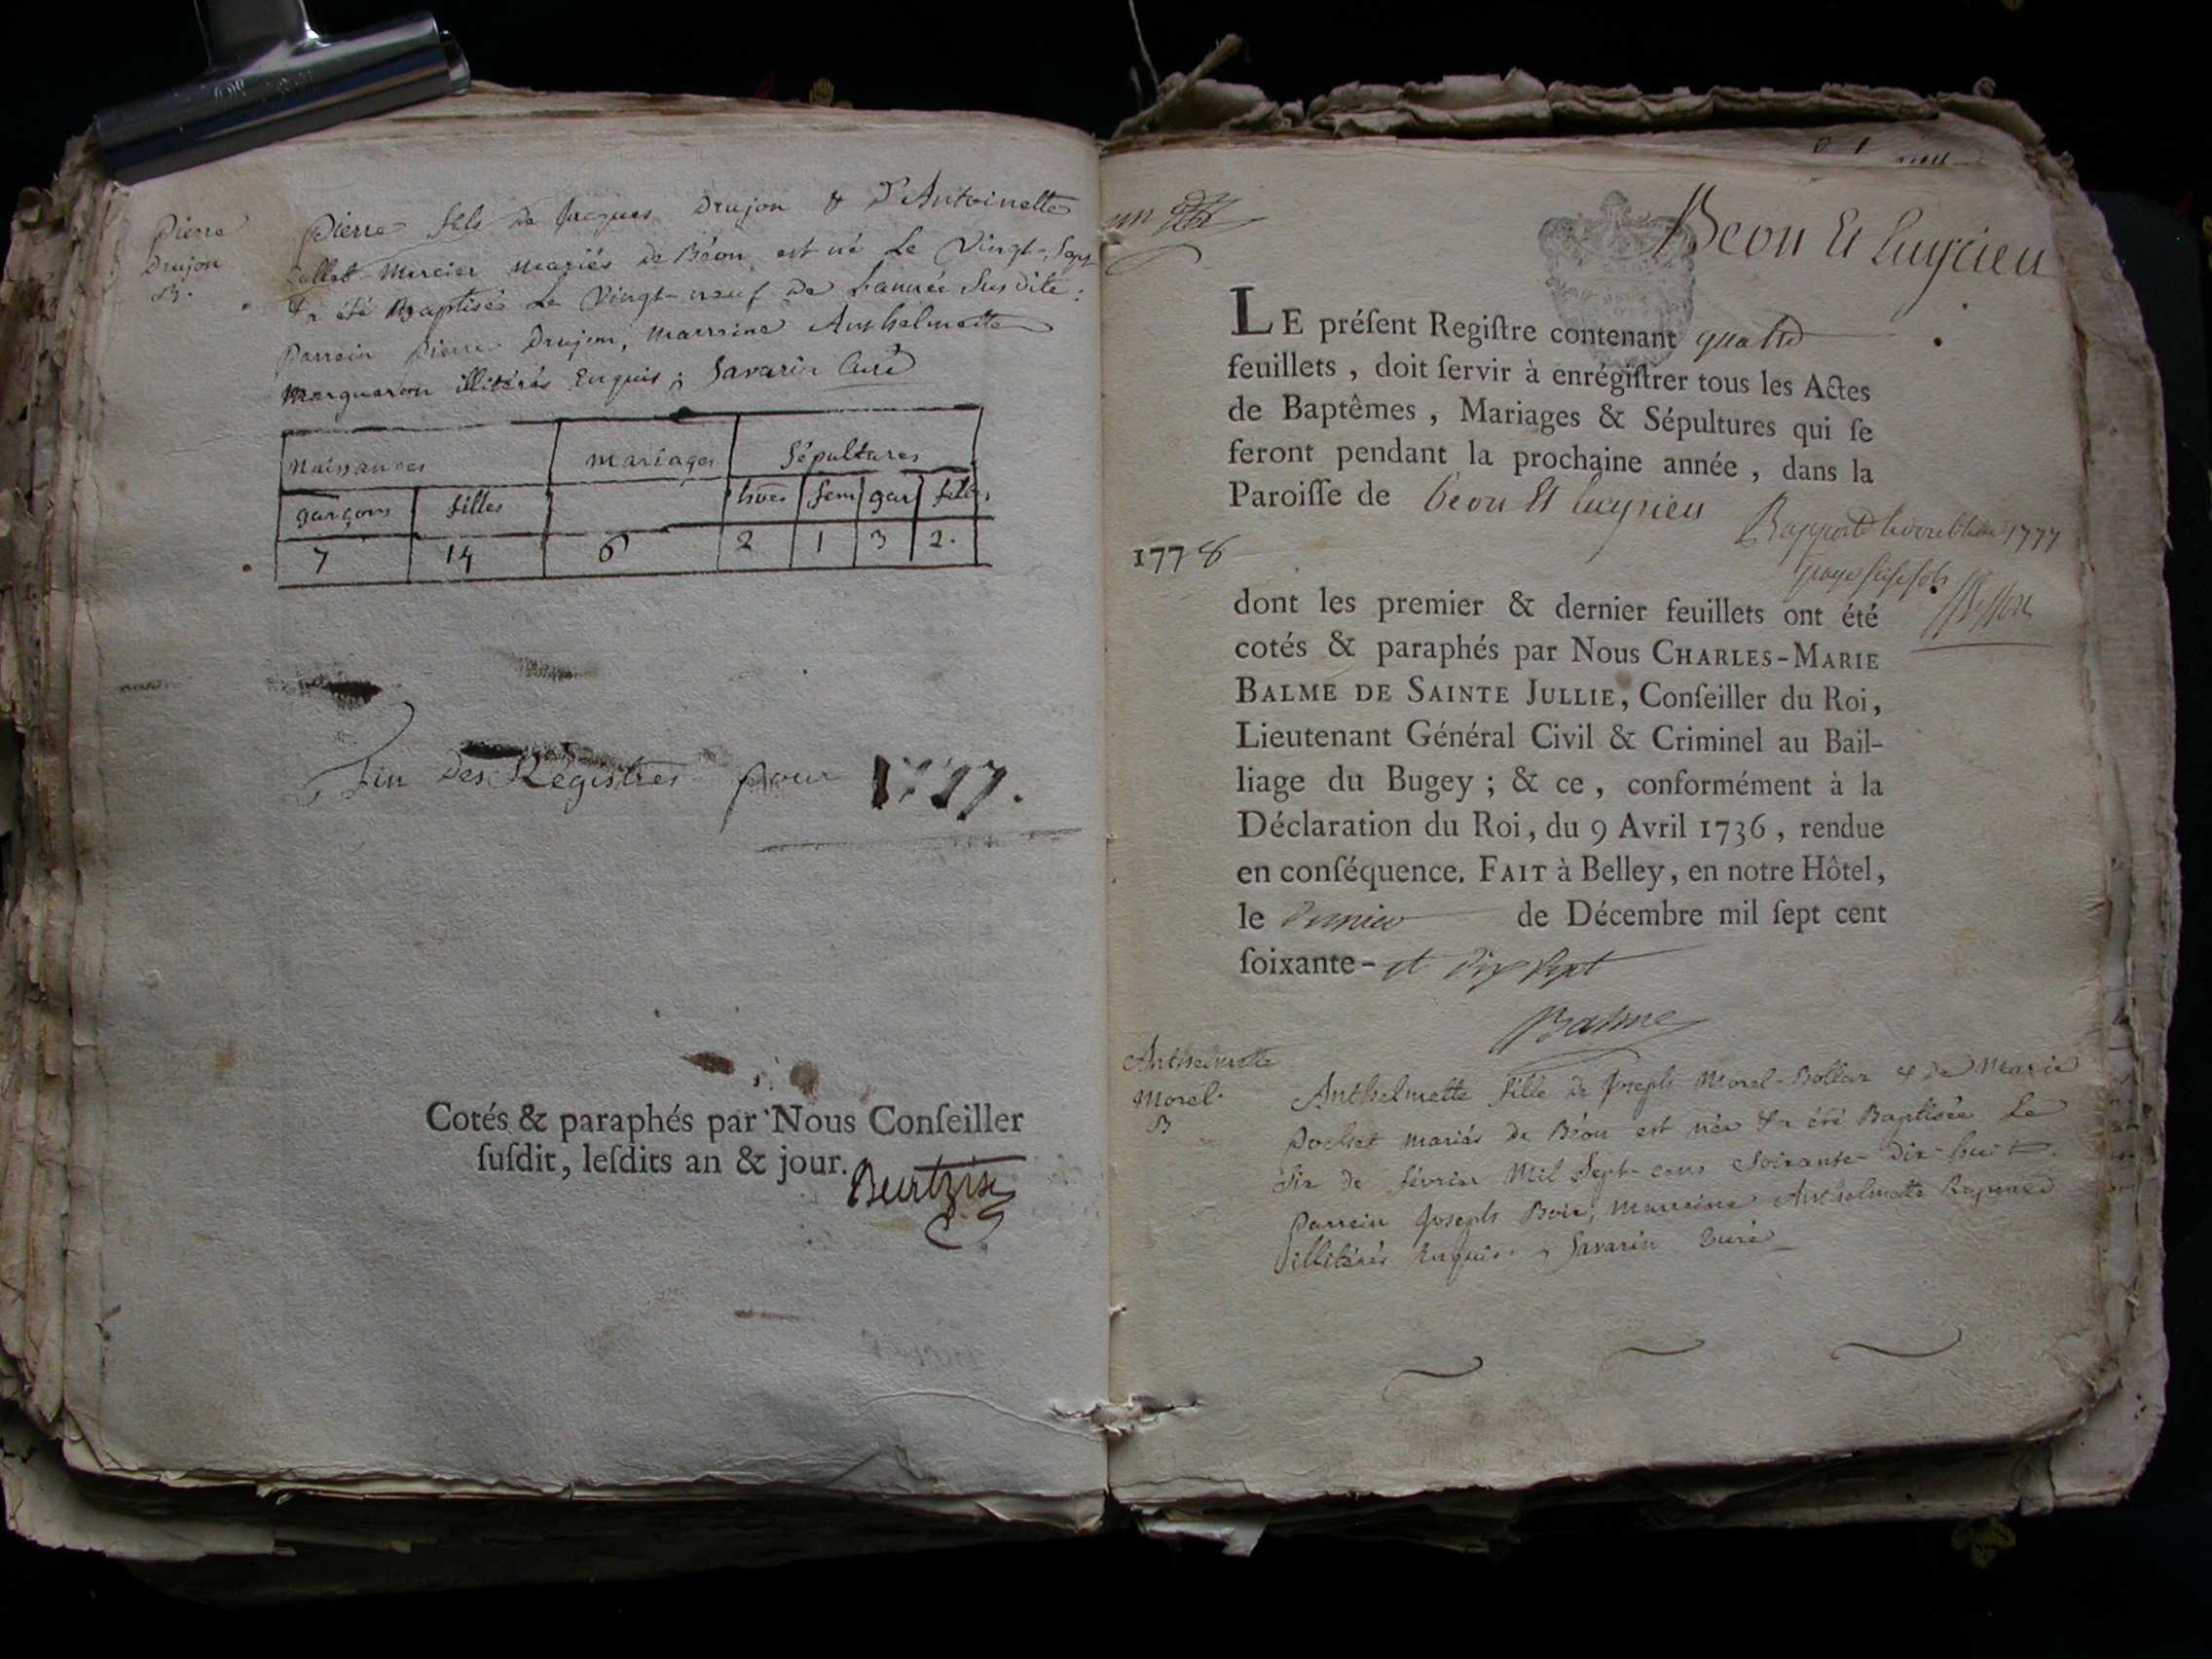 Pierre
Drujon
B.
Pierre fils de Jacques Drujon & d'Antoinette
Collet-Mercier mariés de Béon est né Le Vingt-Sept
& a été Baptisé Le Vingt-neuf de L'année Susdite:
Parrein Pierre Drujon, Marreine Anthelmette
Marguaron illitérés Enquis; Savarin Curé
Naissances mariages Sépultures
garçons filles hoës fem gar filles
7 14 6 2 1 3 2.
Fin des Régistres pour 1777.
Cotés & paraphés par Nous Conſeiller
ſuſdit, leſdits an & jour.
un
Béon Et Luyrieu
LE préſent Regiſtre contenant quatre
feuillets, doit ſervir à enrégiſtrer tous les Actes
de Baptêmes, Mariages & Sépultures qui ſe
feront pendant la prochaine année, dans la
Paroiſſe de béon Et luyrieu
1777
1778
dont les premier & dernier feuillets ont été
cotés & paraphés par Nous CHARLES-MARIE
BALME DE SAINTE JULLIE, Conſeiller du Roi,
Lieutenant Général Civil & Criminel au Bail-
liage du Bugey; & ce, conformément à la
Déclaration du Roi, du 9 Avril 1736, rendue
en conſéquence. FAIT à Belley, en notre Hôtel,
le dernier de Décembre mil ſept cent
ſoixante- et dix sept
Balme
Anthelmette
Morel.
B
Anthelmette fille de Joseph Morel-Bollar & de Marie
mariés de Béon est née & a été Baptisée Le
Six de février Mil Sept-cens Soixante-Dix-huit.
Parrein Joseph Boir, Marreine Anthelmette Raynaud
illitérés Enquis. Savarin Curé